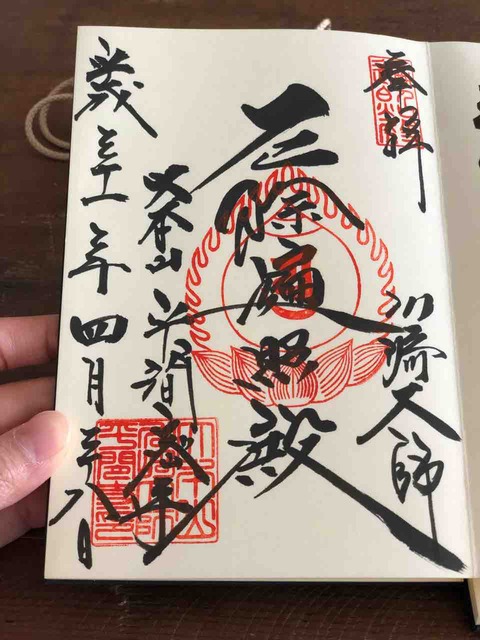 奉拝
川崎大師
厄除遍照殿
大本山平間寺
平成三十一年四月二十八日